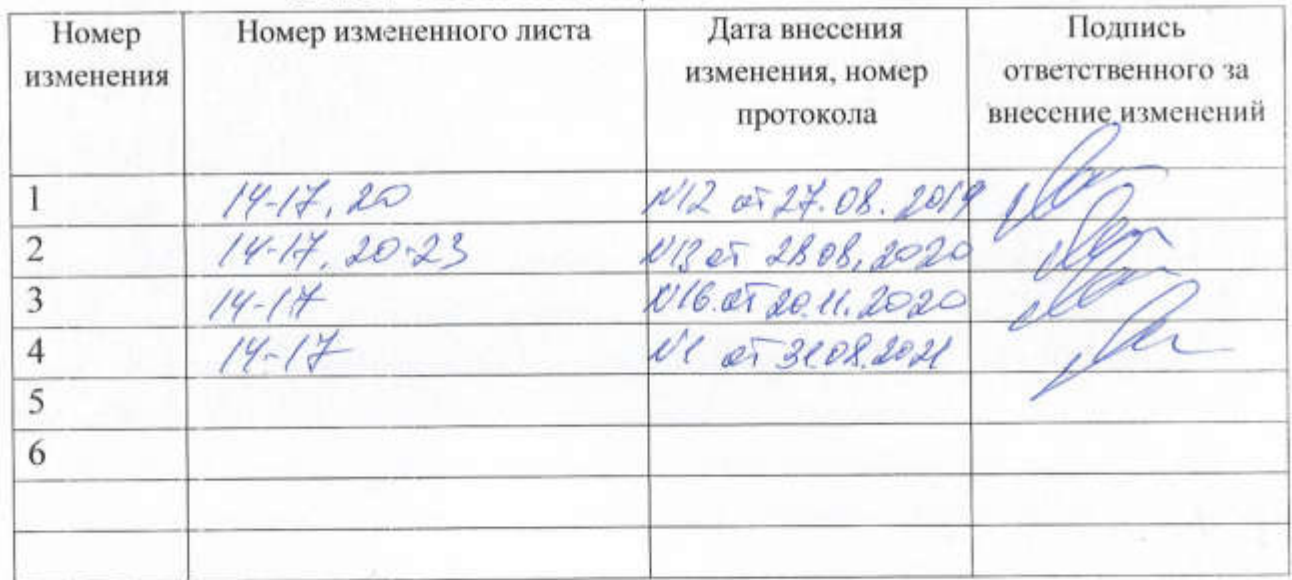 Номер изменения Номер измененного листа Дата внесения изменения, номер протокола Подпись ответственного за внесение изменений
1 14-17, 20 №12 от 27.08.2019
2 14-17, 20-23 №13 от 28.08.2020
3 14-17 №16 от 20.11.2020
4 14-17 №1 от 31.08.2021
5
6